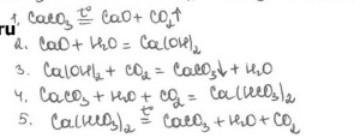 1. CaCO₃ t°= CaO + CO₂↑
ru
2. CaO + H₂O = Ca(OH)₂
3. Ca(OH)₂ + CO₂ = CaCO₃↓ + H₂O
4. CaCO₃ + H₂O + CO₂ = Ca(HCO₃)₂
5. Ca(HCO₃)₂ t°= CaCO₃ + H₂O + CO₂